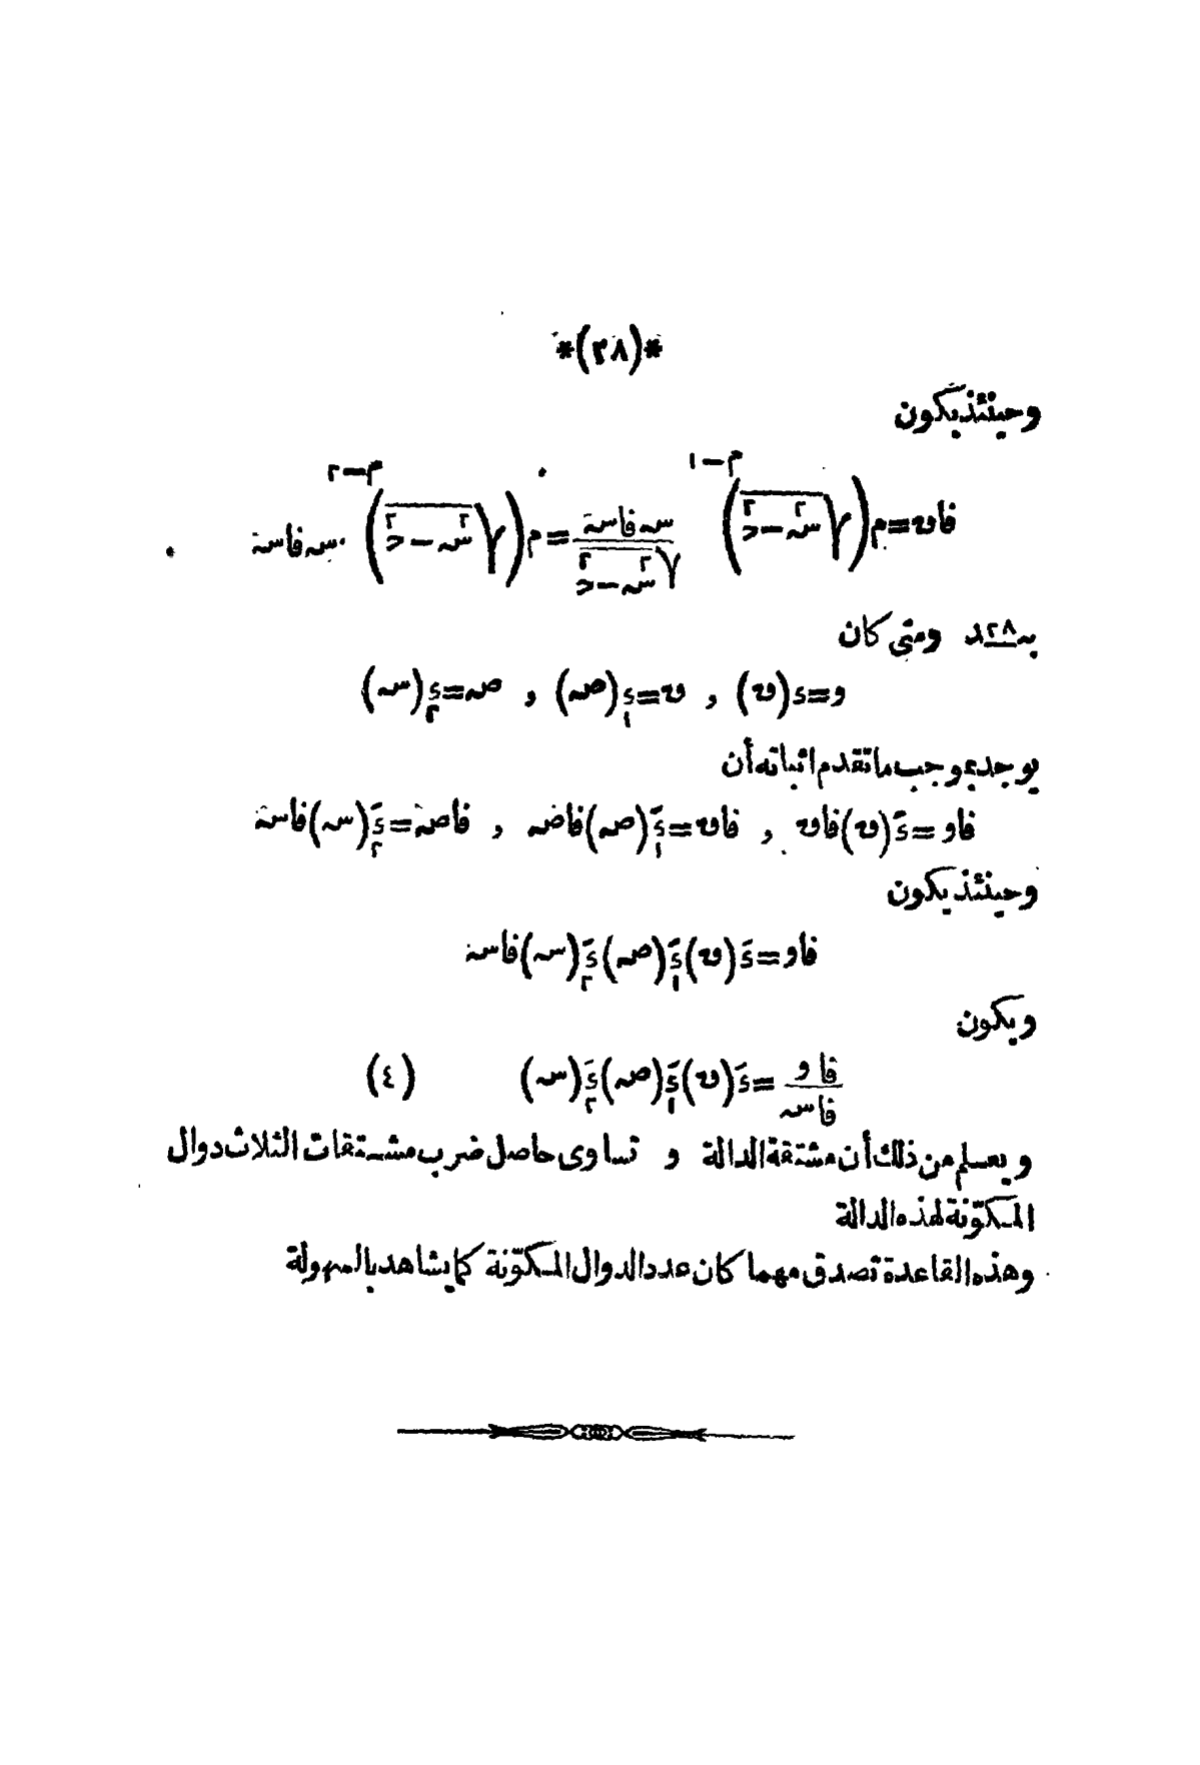 *(٢٨)*
وحينئذ يكون
فاں = م(√(س٢ − ح٢))^(م−١) س فاس / √(س٢ − ح٢) = م(√(س٢ − ح٢))^(م−٢) . س فاس .
بـ ٢٨ـد ومتى كان
و = د(ں) , ں = د١(ص) , ص = د٢(س)
يوجد بموجب ما تقدم اثباته أن
فاو = دَ(ں)فاں , فاں = دَ١(ص)فاص , فاص = دَ٢(س)فاس
وحينئذ يكون
فاو = دَ(ں)دَ١(ص)دَ٢(س)فاس
ويكون
فاو / فاس = دَ(ں)دَ١(ص)دَ٢(س) (٤)
ويعلم من ذلك أن مشتقة الدالة و تساوى حاصل ضرب مشتقات الثلاث دوال
المكوّنة لهذه الدالة
وهذه القاعدة تصدق مهما كان عدد الدوال المكوّنة كما يشاهد بالسهولة